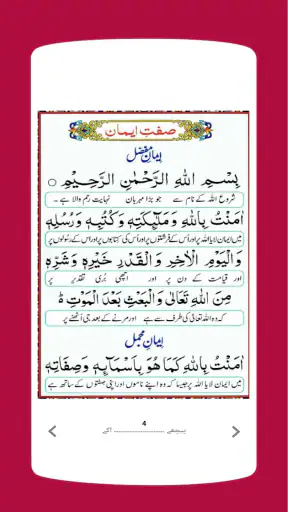 صفتِ ایمان
ایمانِ مفصّل
بِسْمِ اللهِ الرَّحْمٰنِ الرَّحِیْمِ ○
شروع اللہ کے نام سے جو بڑا مہربان نہایت رحم والا ہے ۔
اٰمَنْتُ بِاللهِ وَمَلٰٓئِكَتِهٖ وَكُتُبِهٖ وَرُسُلِهٖ
میں ایمان لایا اللہ پر اور اُس کے فرشتوں پر اور اُس کی کتابوں پر اور اس کے رسولوں پر
وَالْیَوْمِ الْاٰخِرِ وَالْقَدْرِ خَیْرِهٖ وَشَرِّهٖ
اور قیامت کے دن پر اور اچھی بُری تقدیر پر
مِنَ اللهِ تَعَالٰی وَالْبَعْثِ بَعْدَ الْمَوْتِ ؕ
کہ وہ اللہ تعالٰی کی طرف سے ہے اور مرنے کے بعد جی اُٹھنے پر
ایمانِ مجمل
اٰمَنْتُ بِاللهِ كَمَا هُوَ بِاَسْمَآئِهٖ وَصِفَاتِهٖ
میں ایمان لایا اللہ پر جیسا کہ وہ اپنے ناموں اور اپنی صفتوں کے ساتھ ہے
4
پیچھے ۔۔۔۔۔۔۔۔۔۔ آگے